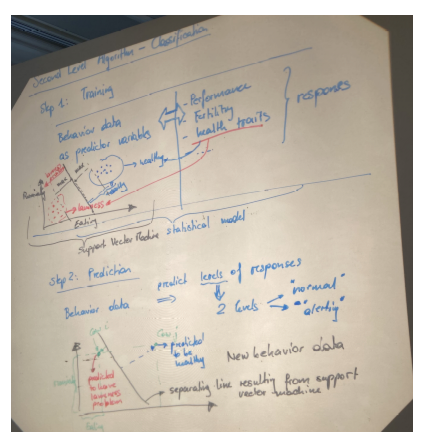 Second Level Algorithm - Classification
Step 1: Training
Behavior data
as predictor variables
- Performance
- Fertility
- health traits
responses
healthy
max
max
Ruminating
lameness
Eating
Support Vector Machine
statistical model
Step 2: Prediction
Behavior data
⇒
predict levels of responses
2 levels
"normal"
"alerting"
Cow i
Cow j
predicted
to be
healthy
predicted
to have
lameness
problem
New behavior data
separating line resulting from support
vector machine
Eating